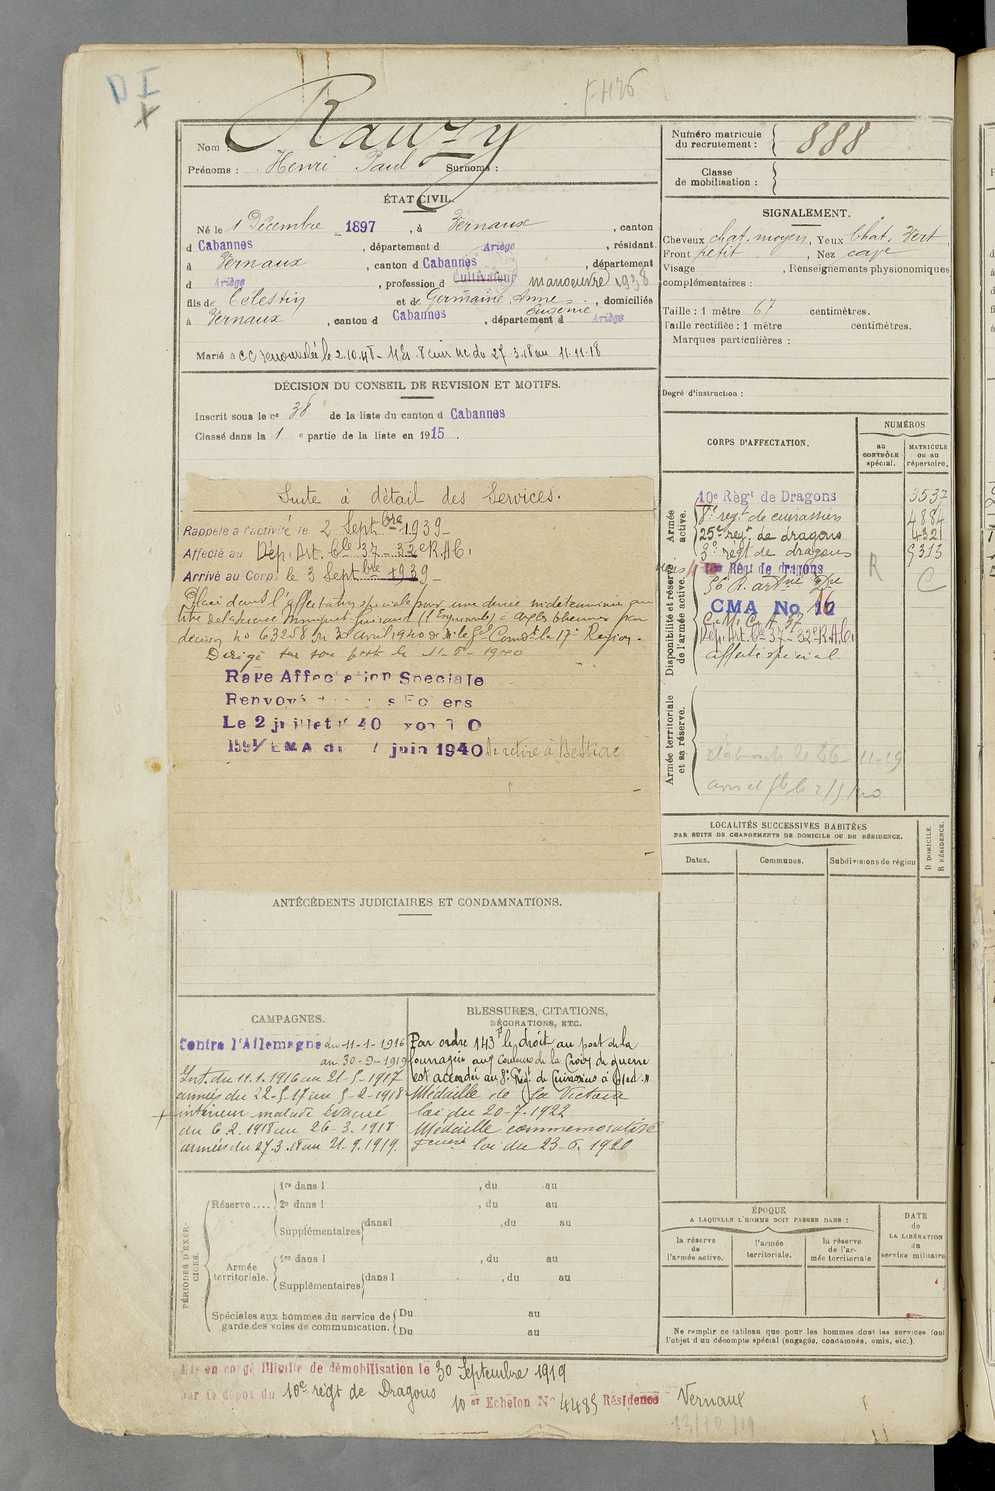 D I
X
Nom : Rauzy
Prénoms : Henri Paul Surnoms :
ÉTAT CIVIL.
Né le 1 Décembre 1897, à Vernaux, canton
d Cabannes, département d Ariège, résidant
à Vernaux, canton d Cabannes, département
d Ariège, profession d Cultivateur manoeuvre 1938
fils de Célestin et de Germaine Anne Eugénie, domiciliés
à Vernaux, canton d Cabannes, département d Ariège
Marié à CC renouvelée le 2.10.48 - du 27.3.18 au 11-11-18
DÉCISION DU CONSEIL DE REVISION ET MOTIFS.
Inscrit sous le nº 38 de la liste du canton d Cabannes
Classé dans la 1 e partie de la liste en 1915.
Suite à détail des Services.
Rappelé à l'activité le 2 Septbre 1939-
Affecté au Dép. Art. Cle 37 - 32e R.A.C.
Arrivé au Corps le 3 Septbre 1939-
Placé dans l'affectation spéciale pour une durée indéterminée au
titre de la
décision No 63258 du 30 avril 1940 de Mr le Gl Comdt la 17e Région.
Dirigé sur son poste le 11-5-1940
Raye Affectation Speciale
Renvoyé
Le 2 juillet
juin 1940 Se retire à Bestiac
ANTÉCÉDENTS JUDICIAIRES ET CONDAMNATIONS.
CAMPAGNES.
Contre l'Allemagne du 11-1-1916
au 30-9-1919
Int. du 11.1.1916 au 21-5-1917
armées du 22-5-17 au 5-2-1918
+ intérieur malade évacué
du 6.2.1918 au 26-3.1918
armées du 27.3.18 au 21.9.1919.
BLESSURES, CITATIONS,
DÉCORATIONS, ETC.
Par ordre 143 F le droit au port de la
fourragère aux couleurs de la Croix de guerre
est accordé au 8e Régt de Cuirassiers à pied
Médaille de la Victoire
loi du 20-7-1922
Médaille commémorative
guerre loi du 23-6.1920
PÉRIODES D'EXERCICES.
Réserve ....
1re dans l , du au
2e dans l , du au
Supplémentaires dans l , du au
Armée territoriale.
1re dans l , du au
Supplémentaires dans l , du au
Spéciales aux hommes du service de garde des voies de communication.
Du au
Du au
Mis en congé illimité de démobilisation le 30 Septembre 1919
par le dépôt du 10e régt de Dragons 10 er Echelon No 4485 Résidence Vernaux
13/10/19
Numéro matricule
du recrutement : 888
Classe
de mobilisation :
SIGNALEMENT.
Cheveux chat. moyen, Yeux Chat. Vert
Front petit, Nez cave
Visage , Renseignements physionomiques
complémentaires :
Taille : 1 mètre 67 centimètres.
Taille rectifiée : 1 mètre centimètres.
Marques particulières :
Degré d'instruction :
CORPS D'AFFECTATION.
NUMÉROS
au CONTRÔLE spécial.
MATRICULE ou au répertoire.
Armée active.
10e Régt de Dragons 3537
8e regt de cuirassiers 4884
25e regt de dragons 4321
3e regt de dragons 9313
Disponibilité et réserve de l'armée active.
Régt de dragons R
56 R. art C
CMA No 16
C.M. C.A. 37
Dép. Art. Cle 37-32e R.A.C.
affecté spécial.
Armée territoriale et sa réserve.
le 26-11-19
LOCALITÉS SUCCESSIVES HABITÉES
PAR SUITE DE CHANGEMENTS DE DOMICILE OU DE RÉSIDENCE.
Dates. Communes. Subdivisions de région
D DOMICILE.
R RÉSIDENCE.
ÉPOQUE
A LAQUELLE L'HOMME DOIT PASSER DANS :
la réserve de l'armée active.
l'armée territoriale.
la réserve de l'armée territoriale
DATE de LA LIBÉRATION du service militaire
Ne remplir ce tableau que pour les hommes dont les services font
l'objet d'un décompte spécial (engagés, condamnés, omis, etc.).